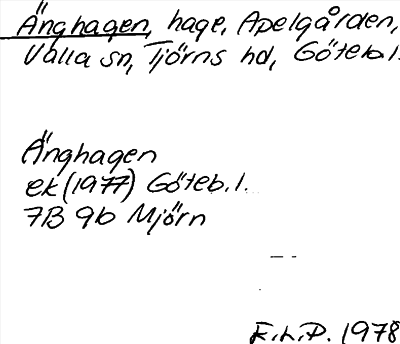 Änghagen, hage, Apelgården,
Valla sn, Tjörns hd, Göteb.l.
Änghagen
ek (1977) Göteb.l.
7B 9b Mjörn
E.L.P. 1978